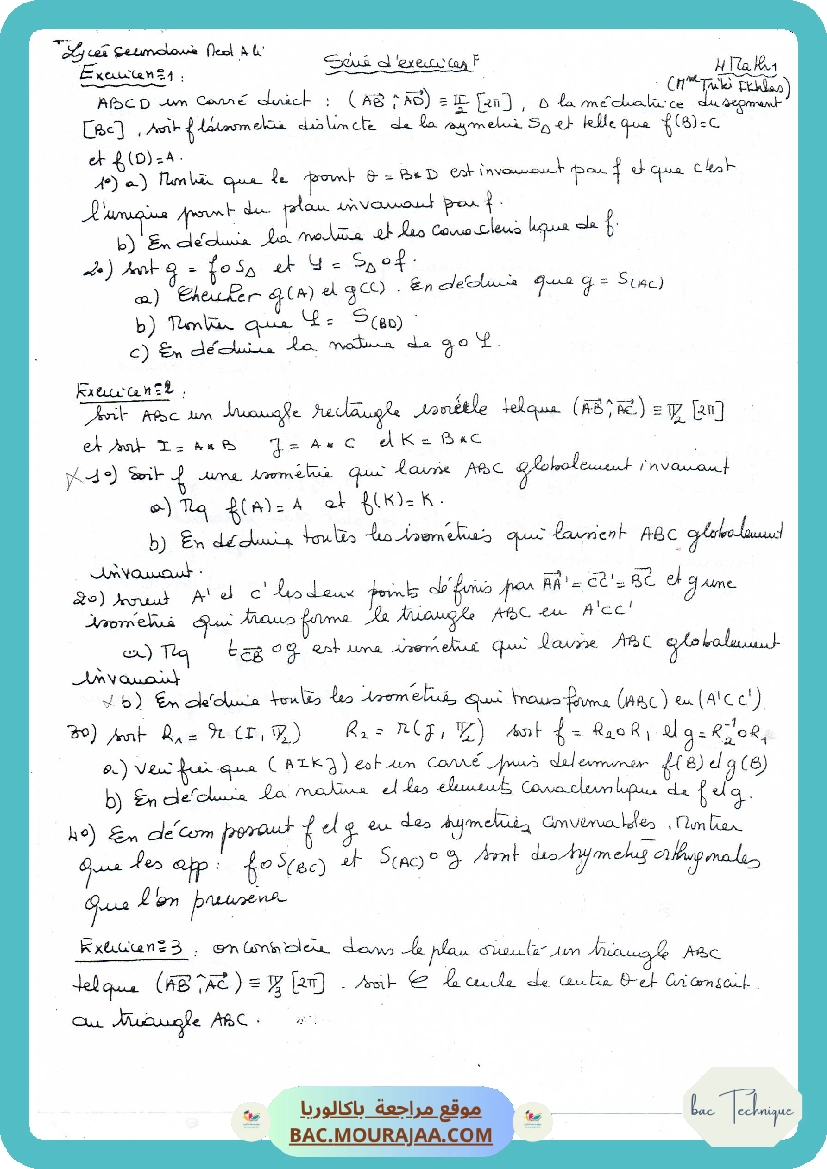 Lycée secondaire Med Ali
Série d'exercices
4 Maths
(Mme Triki Ikhlas)
Exercice n=1 :
ABCD un carré direct : (AB ^, AD) ≡ π/2 [2π], Δ la médiatrice du segment
[BC], soit f l'isometrie distincte de la symetrie SΔ et telle que f(B)=C
et f(D)=A.
1°) a) Montrer que le point O = B*D est invariant par f et que c'est
l'unique point du plan invariant par f.
b) En déduire la nature et les caractéristique de f.
2°) soit g = foSΔ et φ = SΔof.
a) Chercher g(A) et g(C). En déduire que g = S(AC)
b) Montrer que φ = S(BD).
c) En déduire la nature de goφ.
Exercice n=2 :
Soit ABC un triangle rectangle isocèle tel que (AB ^, AC) ≡ π/2 [2π]
et soit I = A*B J = A*C et K = B*C
1°) Soit f une isométrie qui laisse ABC globalement invariant
a) Mq f(A)=A et f(K)=K.
b) En déduire toutes les isométries qui laissent ABC globalement
invariant.
2°) soient A' et C' les deux points définis par AA' = CC' = BC et g une
isométrie qui transforme le triangle ABC en A'CC'
a) Mq tCB o g est une isométrie qui laisse ABC globalement
invariant
b) En déduire toutes les isométries qui transforme (ABC) en (A'CC')
3°) soit R1 = r(I, π/2) R2 = r(J, π/2) soit f = R2oR1 et g = R2⁻¹oR1
a) Vérifier que (AIKJ) est un carré puis déterminer f(B) et g(B)
b) En déduire la nature et les elements caractéristique de f et g.
4°) En décomposant f et g en des symetries convenables. Montrer
que les app : foS(BC) et S(AC)og sont des symetries orthogonales
que l'on precisera
Exercice n=3 : on considère dans le plan orienté un triangle ABC
tel que (AB ^, AC) ≡ π/3 [2π]. soit C le cercle de centre O et circonscrit
au triangle ABC.
bac Technique
موقع مراجعة باكالوريا
BAC.MOURAJAA.COM